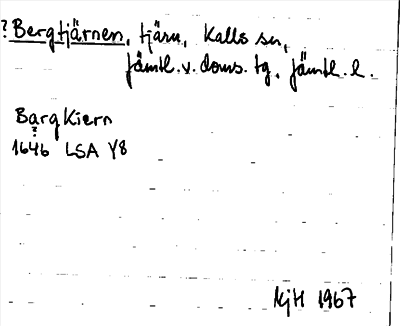 ?Bergtjärnen, tjärn, Kalls sn,
Jämtl. v. doms. tg, Jämtl. l.
Barg Kiern
?
1646 LSA Y8
KjH 1967